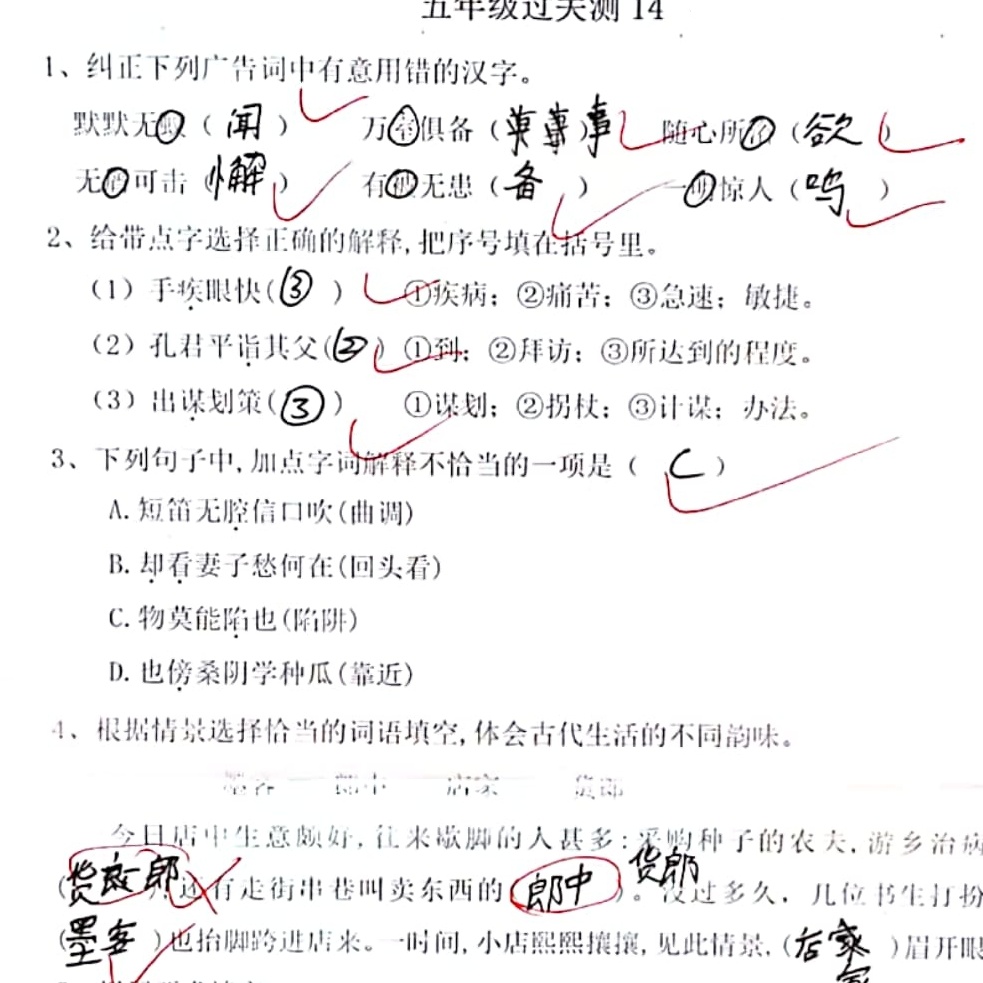 五年级过关测 14
1、纠正下列广告词中有意用错的汉字。
默默无（闻） 万俱备（事） 随心所（欲）
无可击（懈） 有无患（备） 一惊人（鸣）
2、给带点字选择正确的解释,把序号填在括号里。
（1）手疾眼快(③) ①疾病；②痛苦；③急速；敏捷。
（2）孔君平诣其父(②) ①到；②拜访；③所达到的程度。
（3）出谋划策(③) ①谋划；②拐杖；③计谋；办法。
3、下列句子中,加点字词解释不恰当的一项是（C）
A.短笛无腔信口吹(曲调)
B.却看妻子愁何在(回头看)
C.物莫能陷也(陷阱)
D.也傍桑阴学种瓜(靠近)
4、根据情景选择恰当的词语填空,体会古代生活的不同韵味。
墨客 郎中 店家 货郎
今日店中生意颇好,往来歇脚的人甚多:采购种子的农夫,游乡治病
(货郎 还有走街串巷叫卖东西的(郎中)货郎。没过多久，几位书生打扮
(墨客)也抬脚跨进店来。一时间,小店熙熙攘攘,见此情景,(店家)眉开眼